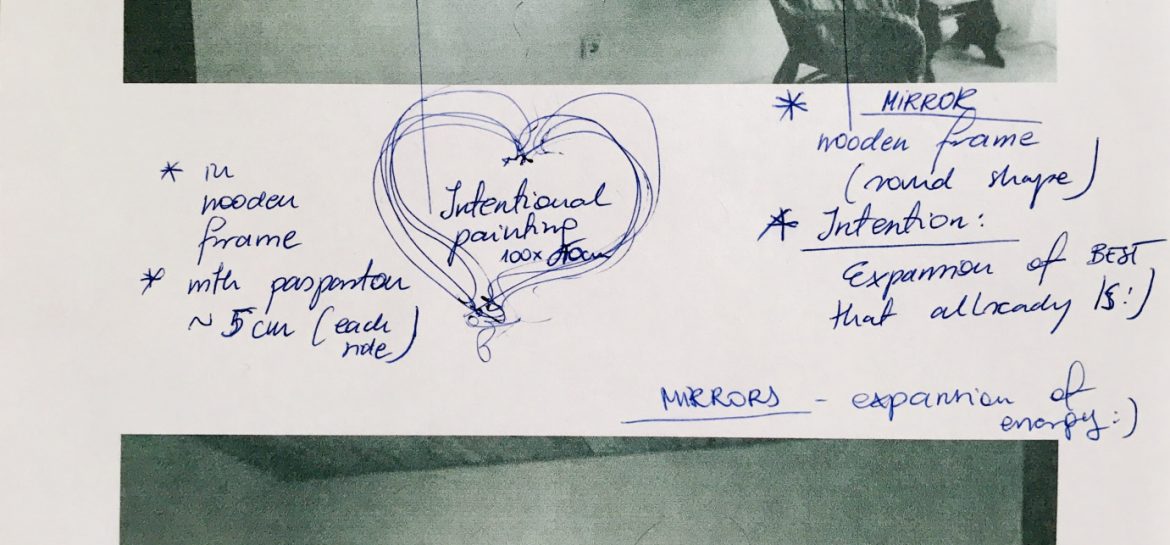 * in
wooden
frame
* with paspartou
~ 5 cm (each
side)
Intentional
painting
100x
* MIRROR
wooden frame
(round shape)
* Intention:
Expansion of BEST
that allready IS :)
MIRRORS - expansion of
energy :)